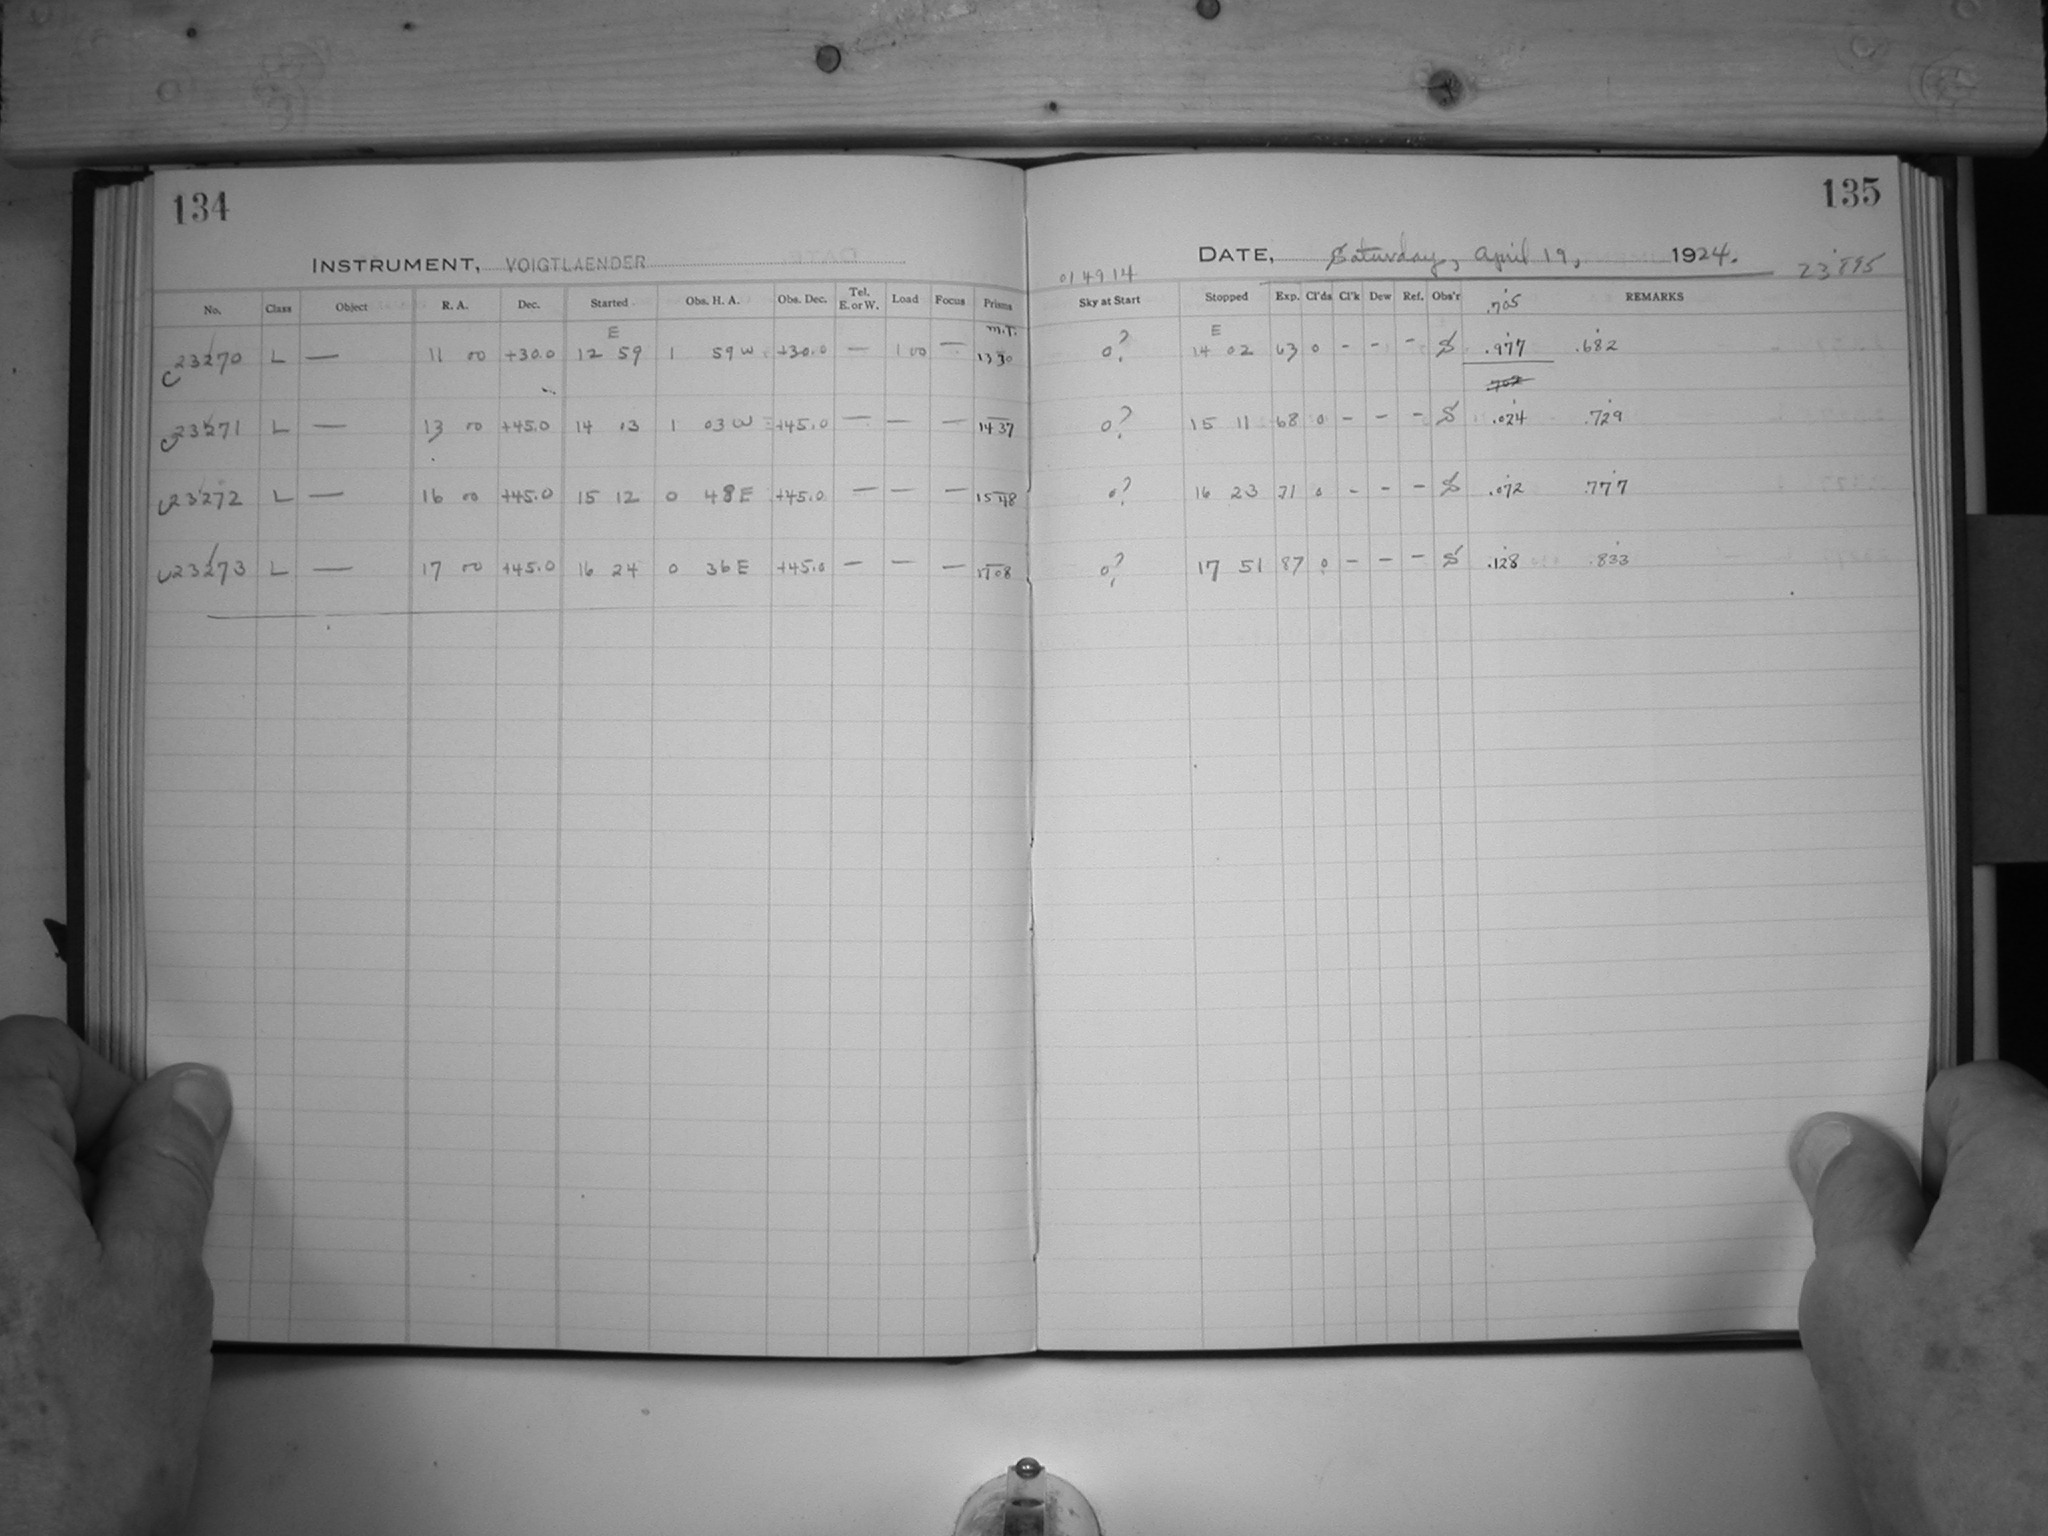 134
INSTRUMENT, VOIGTLAENDER
No. Class Object R. A. Dec. Started Obs. H. A. Obs. Dec. Tel. E. or W. Load Focus Prisms
E M.T.
23270 L — 11 00 +30.0 12 59 1 59 W +30.0 — 1 00 — 13 30
23271 L — 13 00 +45.0 14 13 1 03 W +45.0 — — — 14 37
23272 L — 16 00 +45.0 15 12 0 48 E +45.0 — — — 15 48
23273 L — 17 00 +45.0 16 24 0 36 E +45.0 — — — 17 08
135
DATE, Saturday, April 19, 1924.
01 49 14 23.895
Sky at Start Stopped Exp. Cl'ds Cl'k Dew Ref. Obs'r REMARKS
.705
E
0? 14 02 63 0 - - - S .977 .682
0? 15 11 68 0 - - - S .024 .729
0? 16 23 71 0 - - - S .072 .777
0? 17 51 87 0 - - - S .128 .833